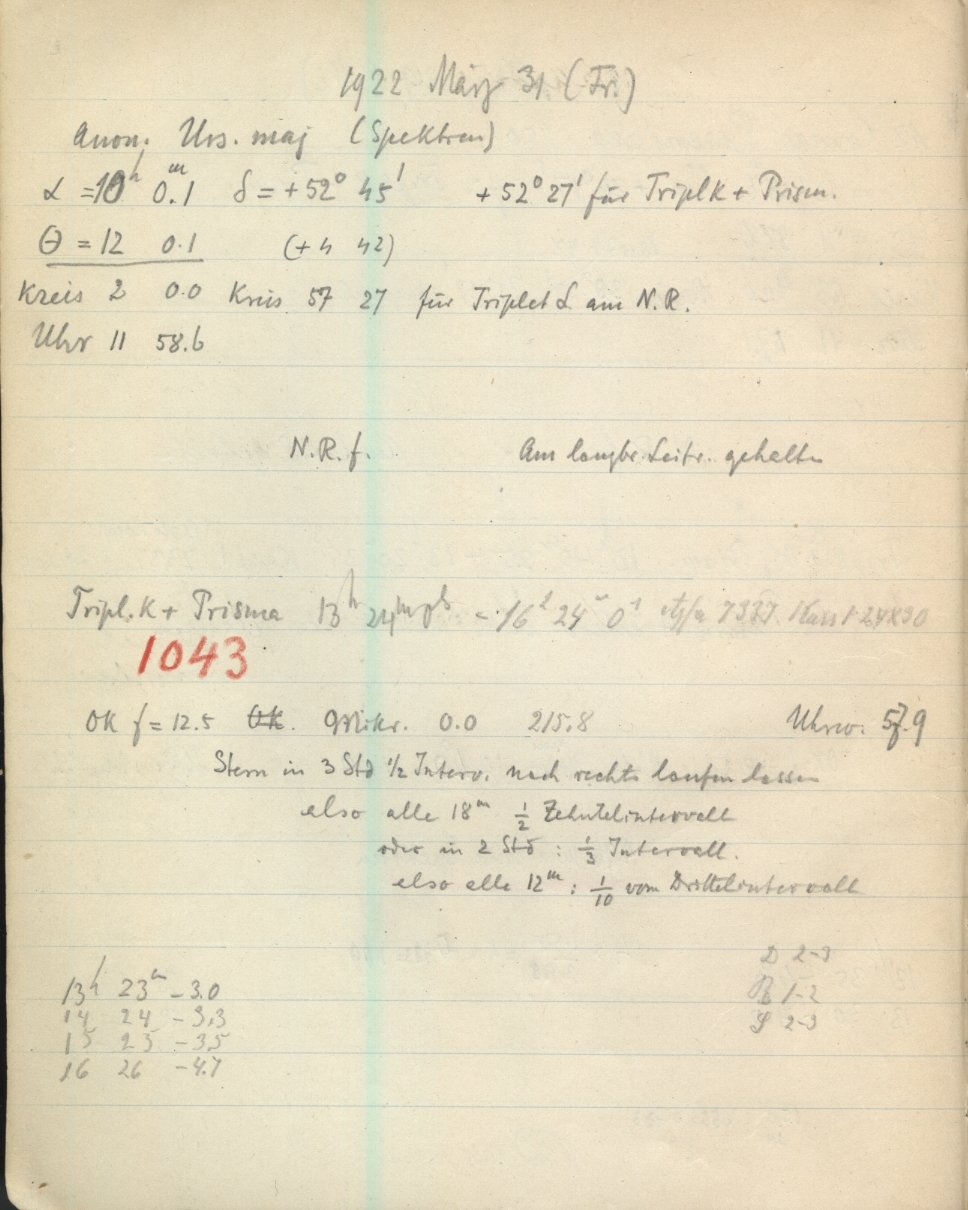 1922 März 31. (Fr.)
Anon. Urs. maj (Spektren)
α = 10h 0.1m δ = +52° 45' +52° 27' für Tripl K + Prism.
θ = 12 0.1 (+4 42)
Kreis 2 0.0 Kreis 57 27 für Triplet L am N.R.
Uhr 11 58.6
N.R. f. Am langbr. Leitr. gehalten
Tripl. K + Prisma 13h 24m 0s - 16h 24m 0s
1043
OK f = 12.5 Mikr. 0.0 215.8 Uhrw. 57.9
Stern in 3 Std ½ Interv. nach rechts laufen lassen
also alle 18m ½ Zehntelintervall
oder in 2 Std : ⅓ Intervall.
also alle 12m : 1/10 vom Drittelintervall
D 2-3
13h 23m - 3.0
R 1-2
14 24 - 3.3
S 2-3
15 25 - 3.5
16 26 - 4.7